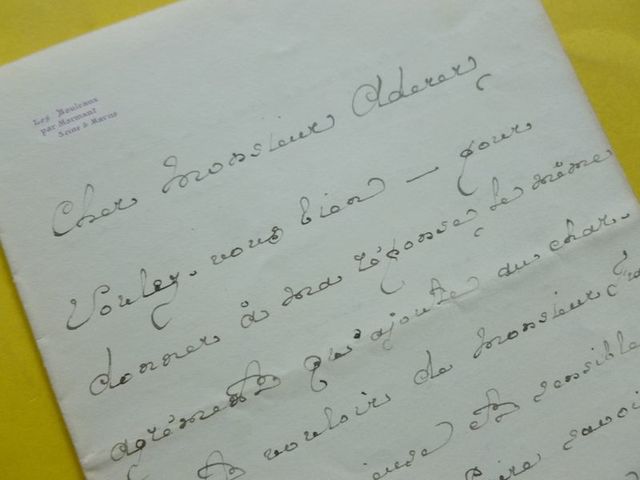 Les Bouleaux
par Mormant
Seine & Marne
Cher Monsieur Aderer
Voulez-vous bien — pour
donner à ma réponse le même
agrément qu'ajoute au char-
vouloir de Monsieur
et sensible
savoir